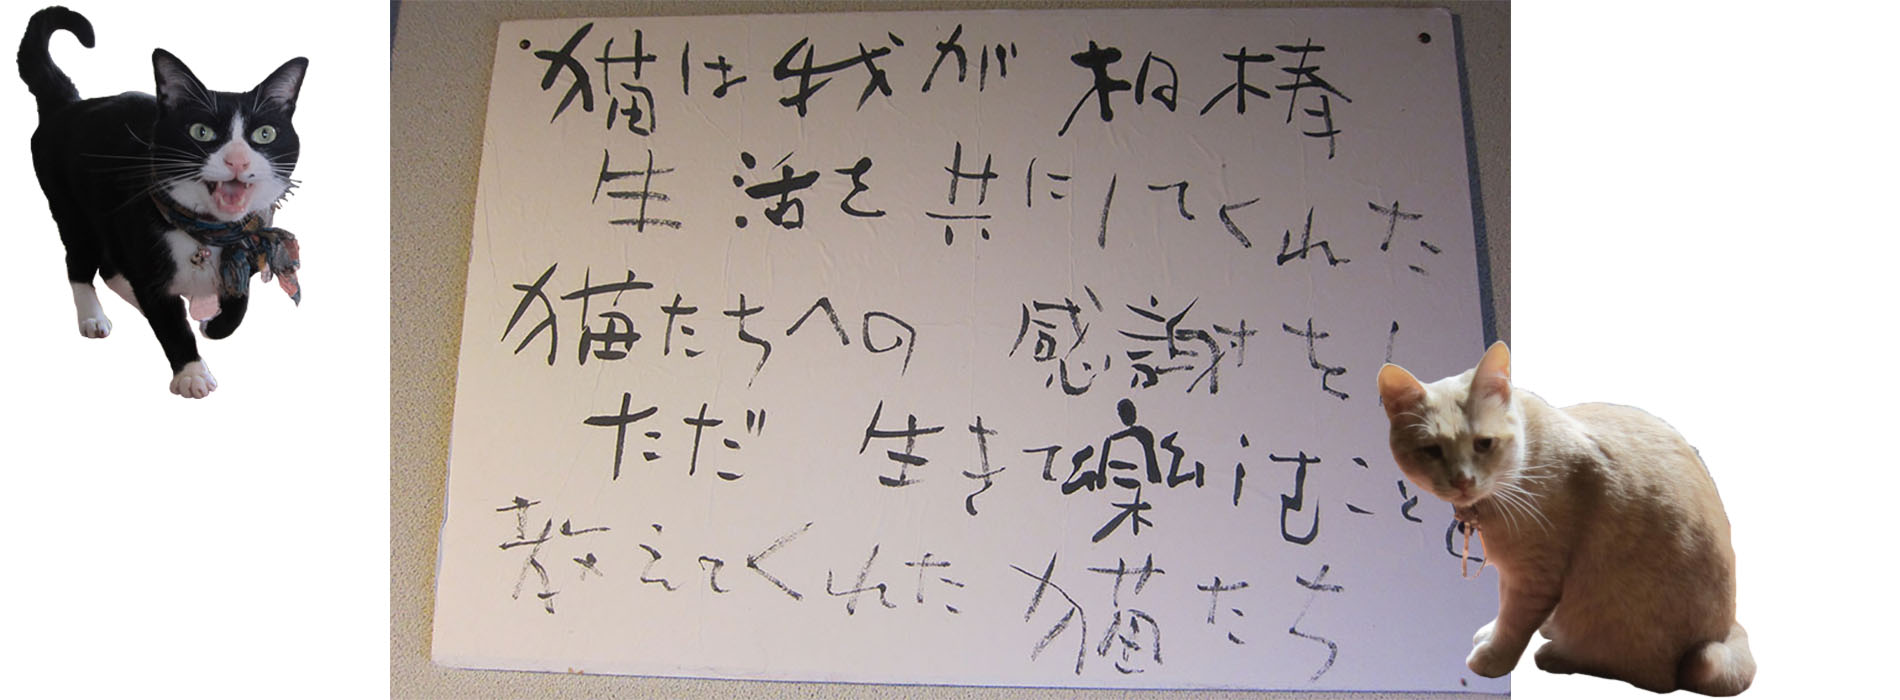 猫は我が相棒
生活を共にしてくれた
猫たちへの 感謝をし
ただ 生きて楽しむこと
教えてくれた 猫たち